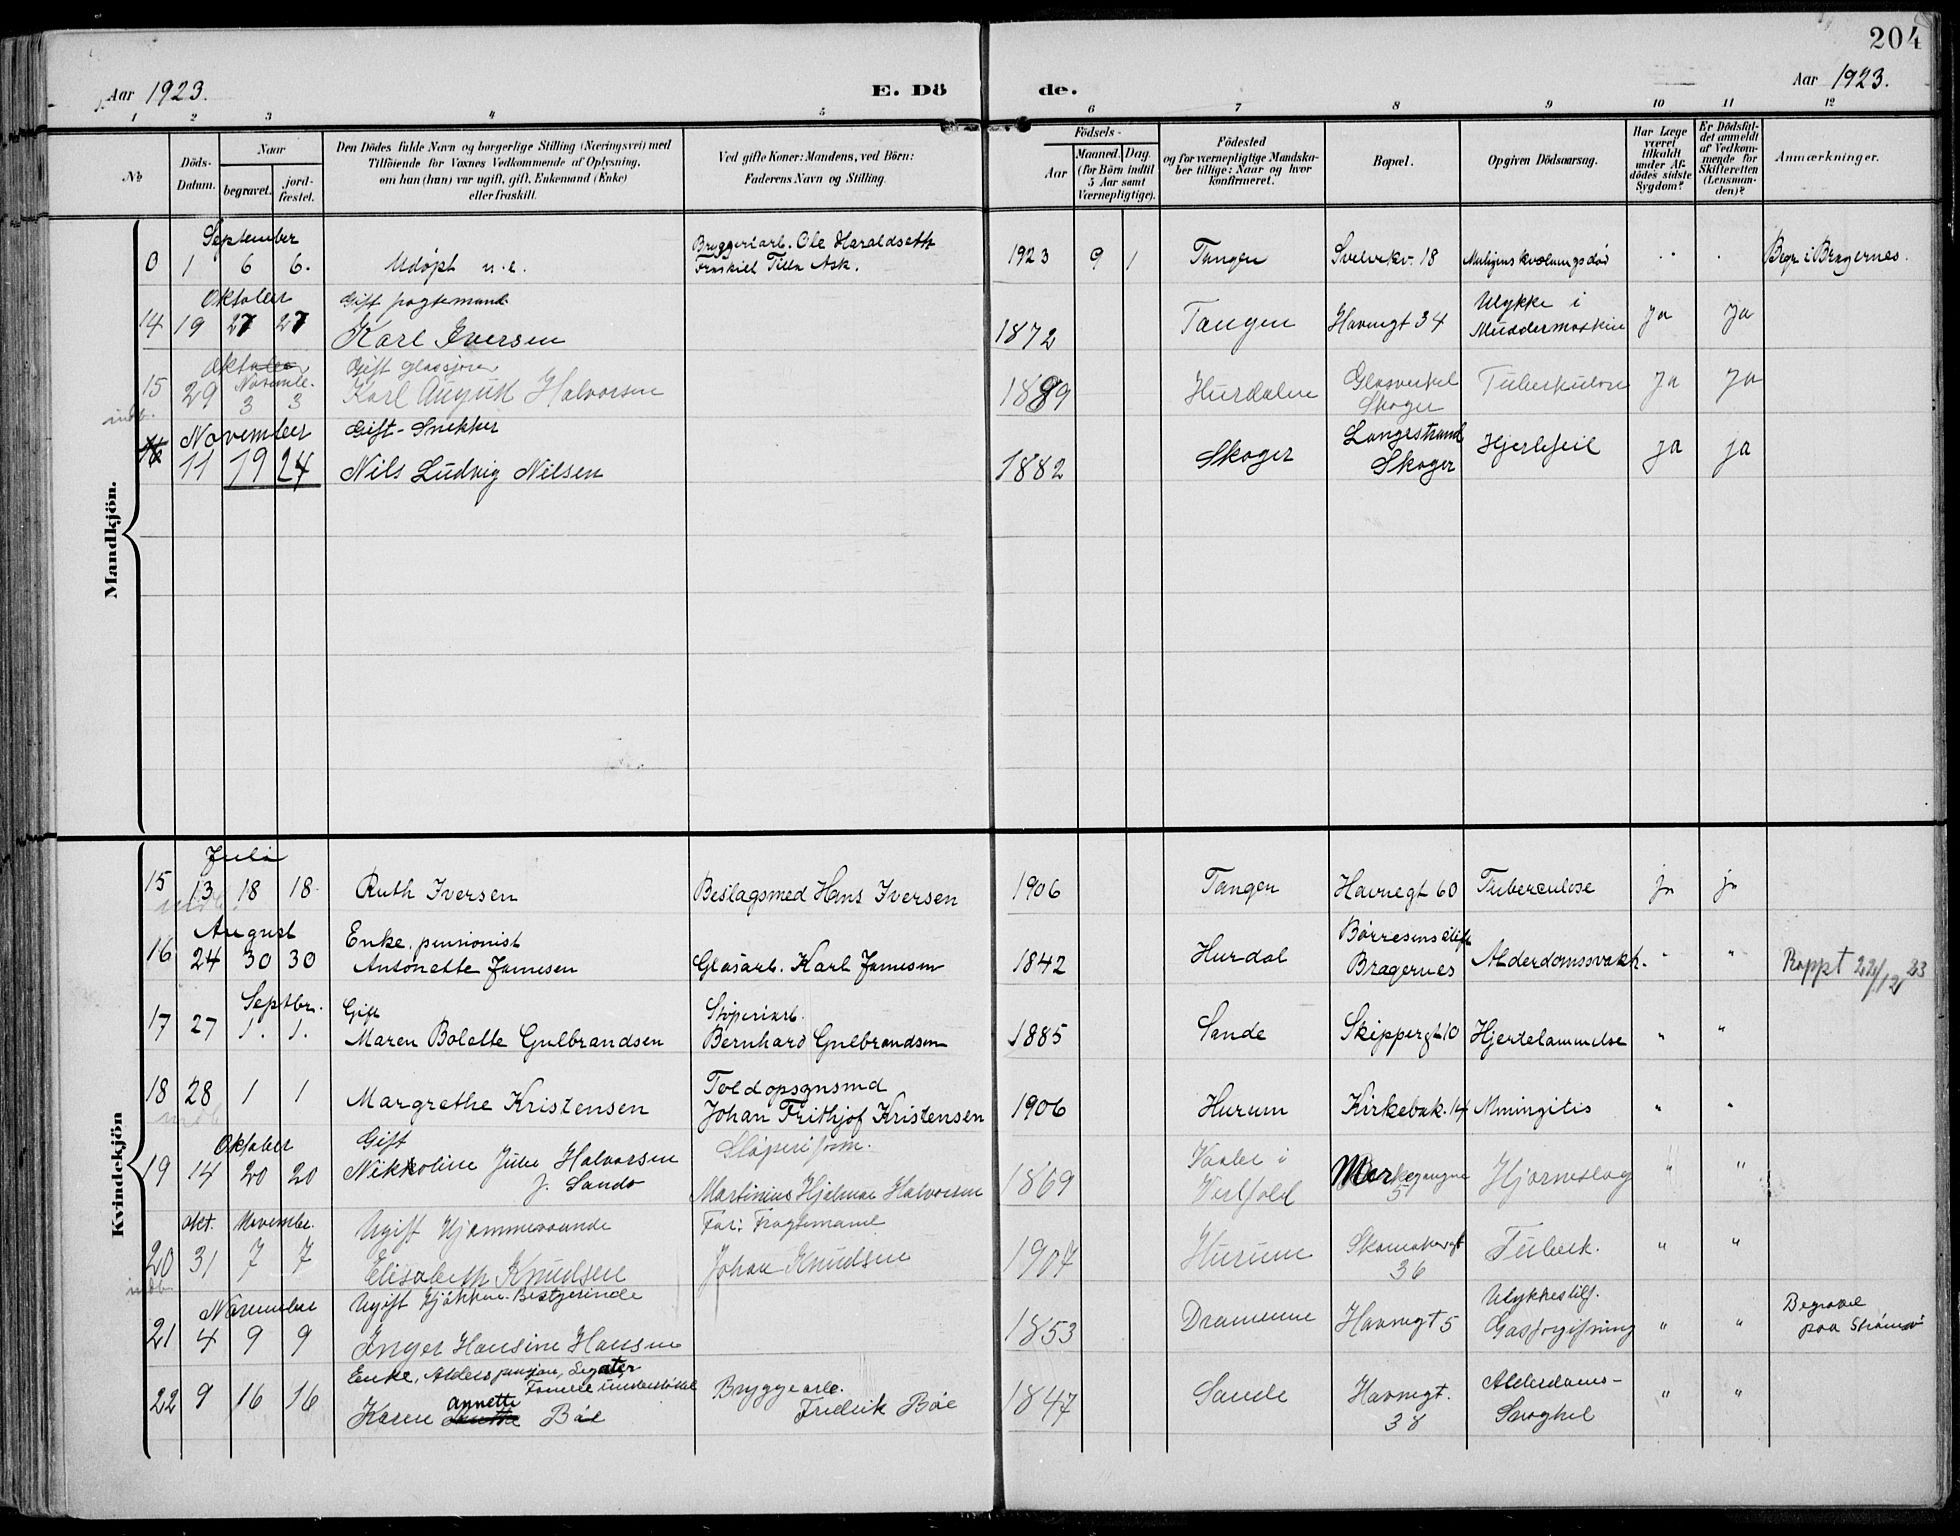 204
Aar 1923.
E. Dö de.
Aar 1923.
1 2 3 4 5 6 7 8 9 10 11 12
No
Döds-Datum.
Naar
begravet.
jord-fæstet.
Den Dödes fulde Navn og borgerlige Stilling (Næringsvei) med
Tilföiende for Voxnes Vedkommende af Oplysning,
om han (hun) var ugift, gift, Enkemand (Enke)
eller fraskilt.
Ved gifte Koner: Mandens, ved Börn:
Faderens Navn og Stilling.
Födsels-
Aar
Maaned. Dag.
(for Börn indtil
5 Aar samt
Værnepligtige).
Födested
og for værnepligtige Mandska-
ber tillige: Naar og hvor
konfirmeret.
Bopæl.
Opgiven Dödsaarsag.
Har Læge
været
tilkaldt
under Af-
dödes sidste
Sygdom?
Er Dödsfal-
det anmeldt
af Vedkom-
mende for
Skifteretten
(Lensman-
den)?
Anmærkninger.
Mandkjön.
September
0 1 6 6. Udöpt Bryggeriarb. Ole Haraldseth
Fraskilt Tilla Ask. 1923 9 1 Tangen Svelvekv. 18 Begr. i Bragernes.
Oktober
14 19 27 27 Gift
Karl Iversen 1872 Tangen Havnegt 34 Ulykke i
Muddermaskin Ja Ja
Oktober
15 29 Novembe. 3 3 Gift
Karl August Halvorsen 1889 Hurdalen Glasverket
Skoger Tuberkulose Ja Ja
indb.
November
16 11 19 24 Gift - Snekker
Nils Ludvig Nilsen 1882 Skoger Langestrand
Skoger Hjertefeil Ja ja
Kvindekjön
Juli
15 13 18 18 Ruth Iversen Beslagsmed Hans Iversen 1906 Tangen Havnegt 60 Tuberculose ja ja
indb
August
16 24 30 30 Enke, pensionist
Antonette Jamesen Glasarb. Karl Jamesen 1842 Hurdal Börresens stift
Bragernes Alderdomssvakh. " " Rappt 22/12 23
Septbr.
17 27 1. 1. Gift
Maren Bolette Gulbrandsen Støperiarb.
Bernhard Gulbrandsen 1885 Sande Skippergt 10 Hjertelammelse " "
18 28 1 1 Margrethe Kristensen Toldopsynsmd
Johan Frithjof Kristensen 1906 Hurum Kirkebak. 14 Meningitis " "
indb
Oktober
19 14 20 20 Gift
Nikkoline Julie Halvorsen
f. Sando Støperiform.
Martinius Hjelmar Halvorsen 1869 Vaale i
Vestfold Hjerneslag " "
okt. November
20 31 7 7 Ugift Hjemmeværende
Elisabeth Knudsen Far: Fragtemand
Johan Knudsen 1907 Hurum Skomakergt
36 Tuberk. " "
indb.
November
21 4 9 9 Ugift Kjökken-Bestyrerinde
Inger Hansine Hansen 1853 Drammen Havnegt 5 Ulykkestilf.
Gasforgiftning " " Begravet
paa Strömsö
22 9 16 16 Enke, Alderspensjon,
Karen Annette Böe Bryggearb.
Fredrik Böe 1847 Sande Havnegt.
38 Alderdoms-
Svaghet " "